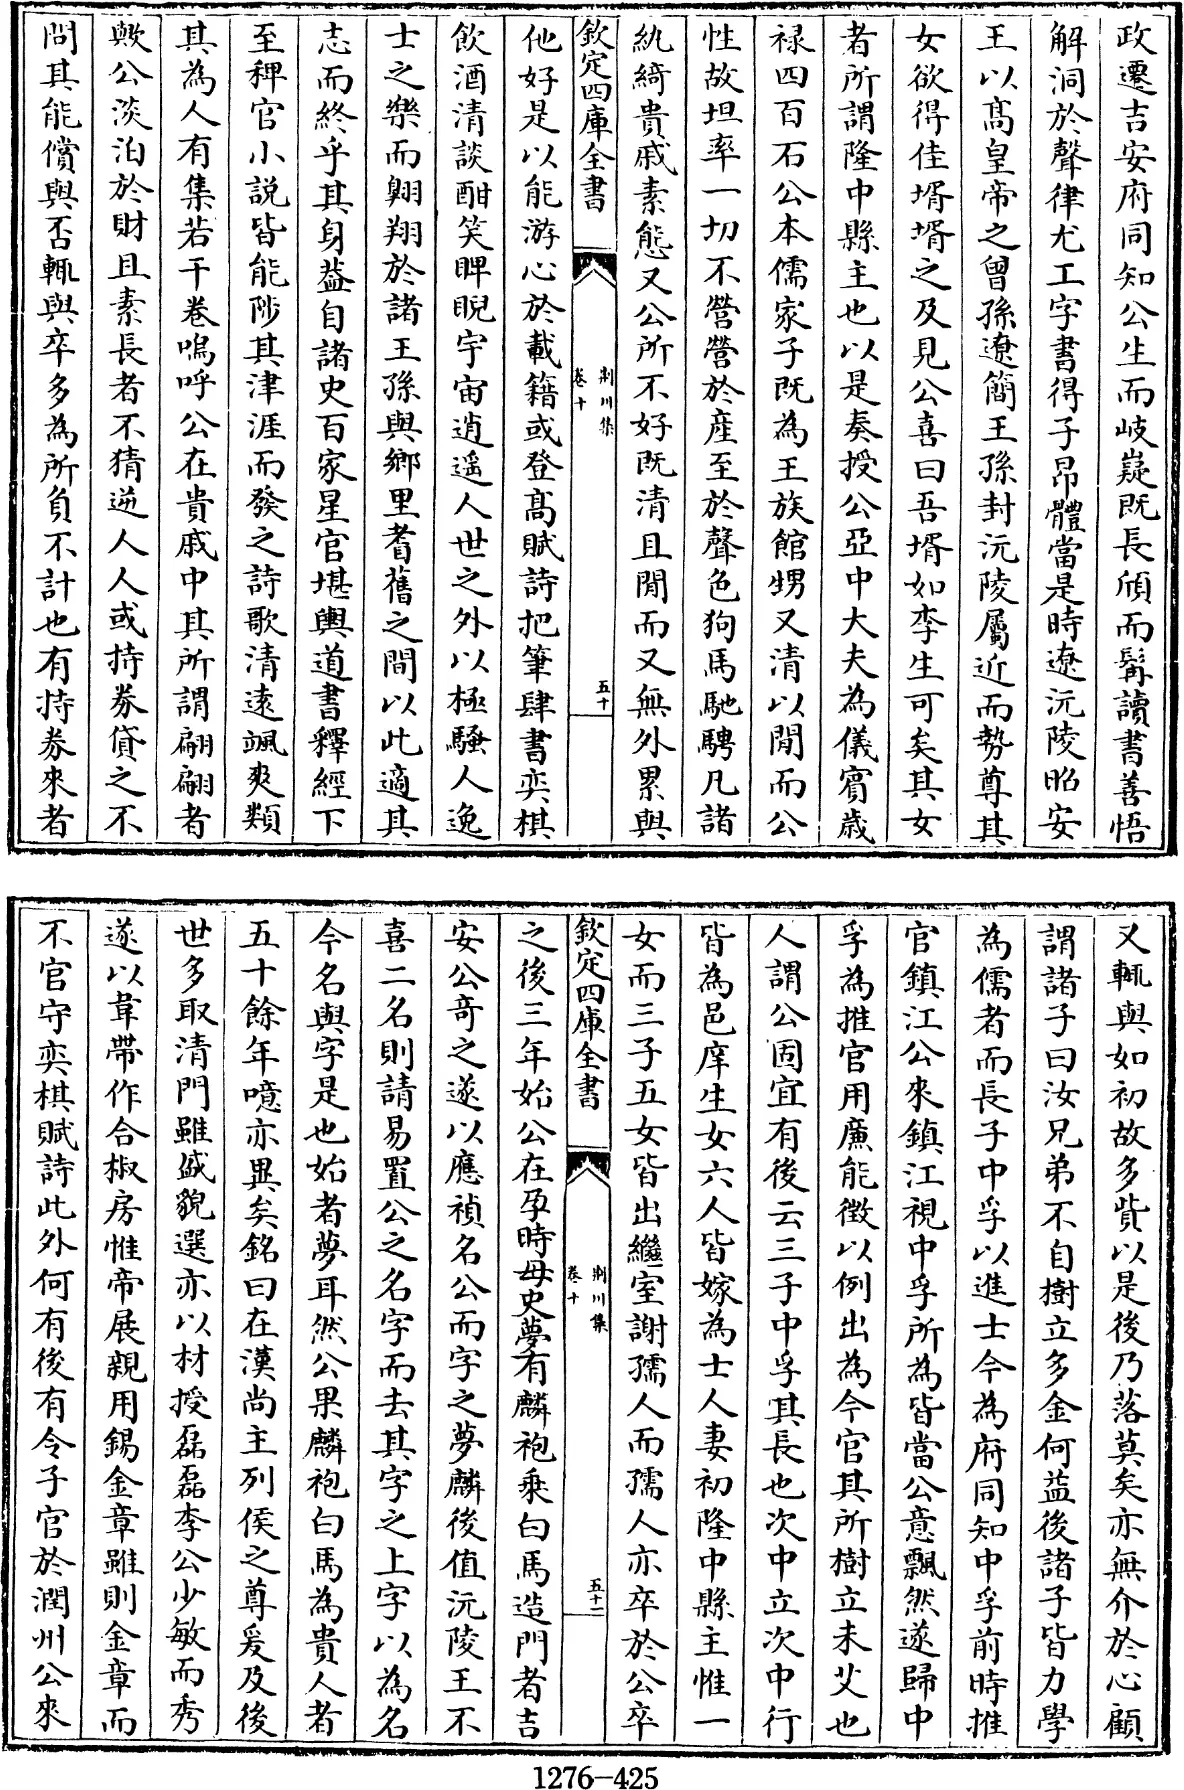 政遷吉安府同知公生而岐嶷既長頎而髯讀書善悟
解洞於聲律尤工字書得子昂體當是時遼沅陵昭安
王以髙皇帝之曾孫遼簡王孫封沅陵屬近而勢尊其
女欲得佳壻壻之及見公喜曰吾壻如李生可矣其女
者所謂隆中縣主也以是奏授公亞中大夫為儀賔歳
禄四百石公本儒家子既為王族館甥又清以閒而公
性故坦率一切不營營於産至於聲色狗馬馳騁凡諸
紈綺貴戚素態又公所不好既清且閒而又無外累與
欽定四庫全書
荆川集
卷十
五十
他好是以能游心於載籍或登髙賦詩把筆肆書奕棋
飲酒清談酣笑睥睨宇宙逍遥人世之外以極騷人逸
士之樂而翺翔於諸王孫與鄉里耆舊之間以此適其
志而終乎其身葢自諸史百家星官堪輿道書釋經下
至稗官小説皆能陟其津涯而發之詩歌清遠颯爽類
其為人有集若干卷嗚呼公在貴戚中其所謂翩翩者
歟公淡泊於財且素長者不猜逆人人或持券貸之不
問其能償與否輒與卒多為所負不計也有持券來者
又輒與如初故多貲以是後乃落莫矣亦無介於心顧
謂諸子曰汝兄弟不自樹立多金何益後諸子皆力學
為儒者而長子中孚以進士今為府同知中孚前時推
官鎮江公來鎮江視中孚所為皆當公意飄然遂歸中
孚為推官用廉能徴以例出為今官其所樹立未艾也
人謂公固宜有後云三子中孚其長也次中立次中行
皆為邑庠生女六人皆嫁為士人妻初隆中縣主惟一
女而三子五女皆出繼室謝孺人而孺人亦卒於公卒
欽定四庫全書
荆川集
卷十
五十一
之後三年始公在孕時母史夢有麟袍乘白馬造門者吉
安公竒之遂以應禎名公而字之夢麟後值沅陵王不
喜二名則請易置公之名字而去其字之上字以為名
今名與字是也始者夢耳然公果麟袍白馬為貴人者
五十餘年噫亦異矣銘曰在漢尚主列侯之尊爰及後
世多取清門雖盛貌選亦以材授磊磊李公少敏而秀
遂以韋帶作合椒房惟帝展親用錫金章雖則金章而
不官守奕棋賦詩此外何有後有令子官於潤州公來
1276-425